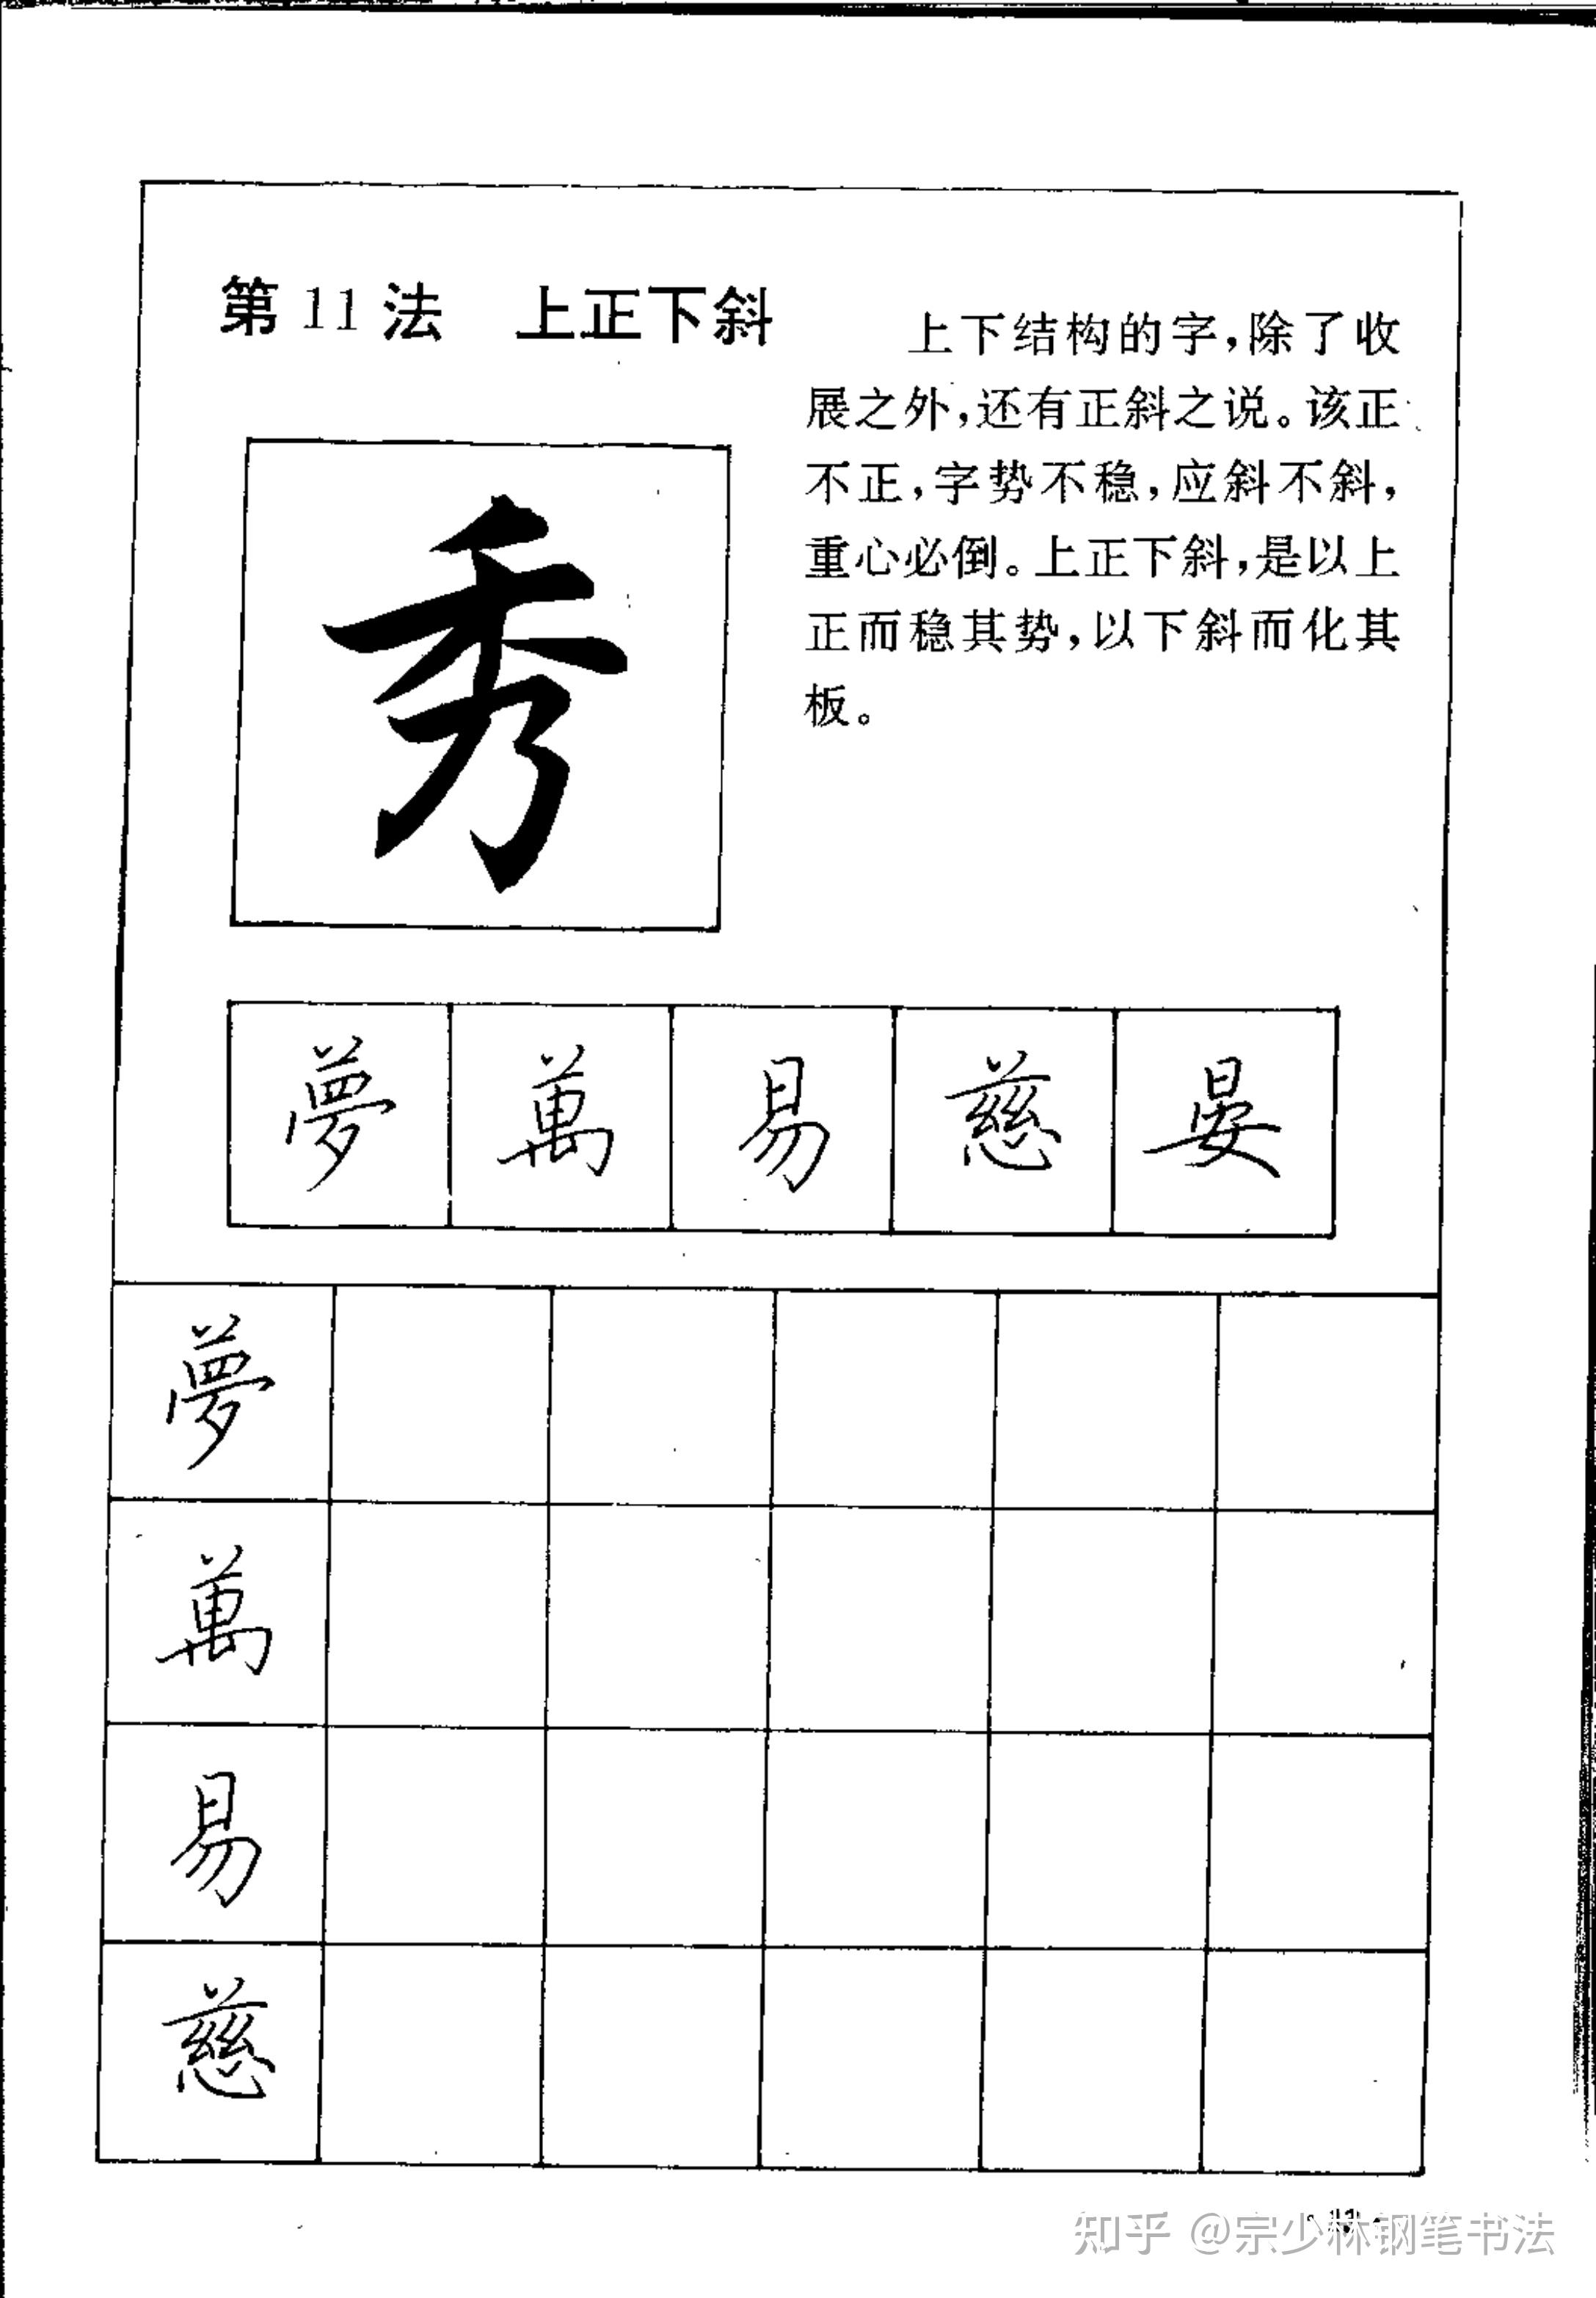 第11法 上正下斜
上下结构的字，除了收
展之外，还有正斜之说。该正
不正，字势不稳，应斜不斜，
重心必倒。上正下斜，是以上
正而稳其势，以下斜而化其
板。
秀
夢 萬 易 慈 晏
夢
萬
易
慈
知乎 @宗少林钢笔书法